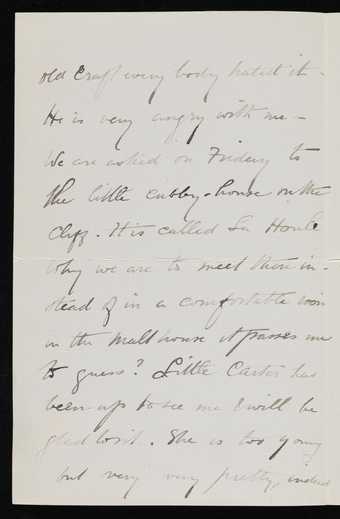 old Craft every body hated it -
He is very angry with me -
We are asked on Friday to
the little cubby-house on the
Cliff. It is called La Houle
Why we are to meet them in-
stead of in a comfortable room
in the Malthouse it passes me
to guess? Little Carter has
been up to see me & will be
glad to sit. She is too young
but very very pretty, indeed